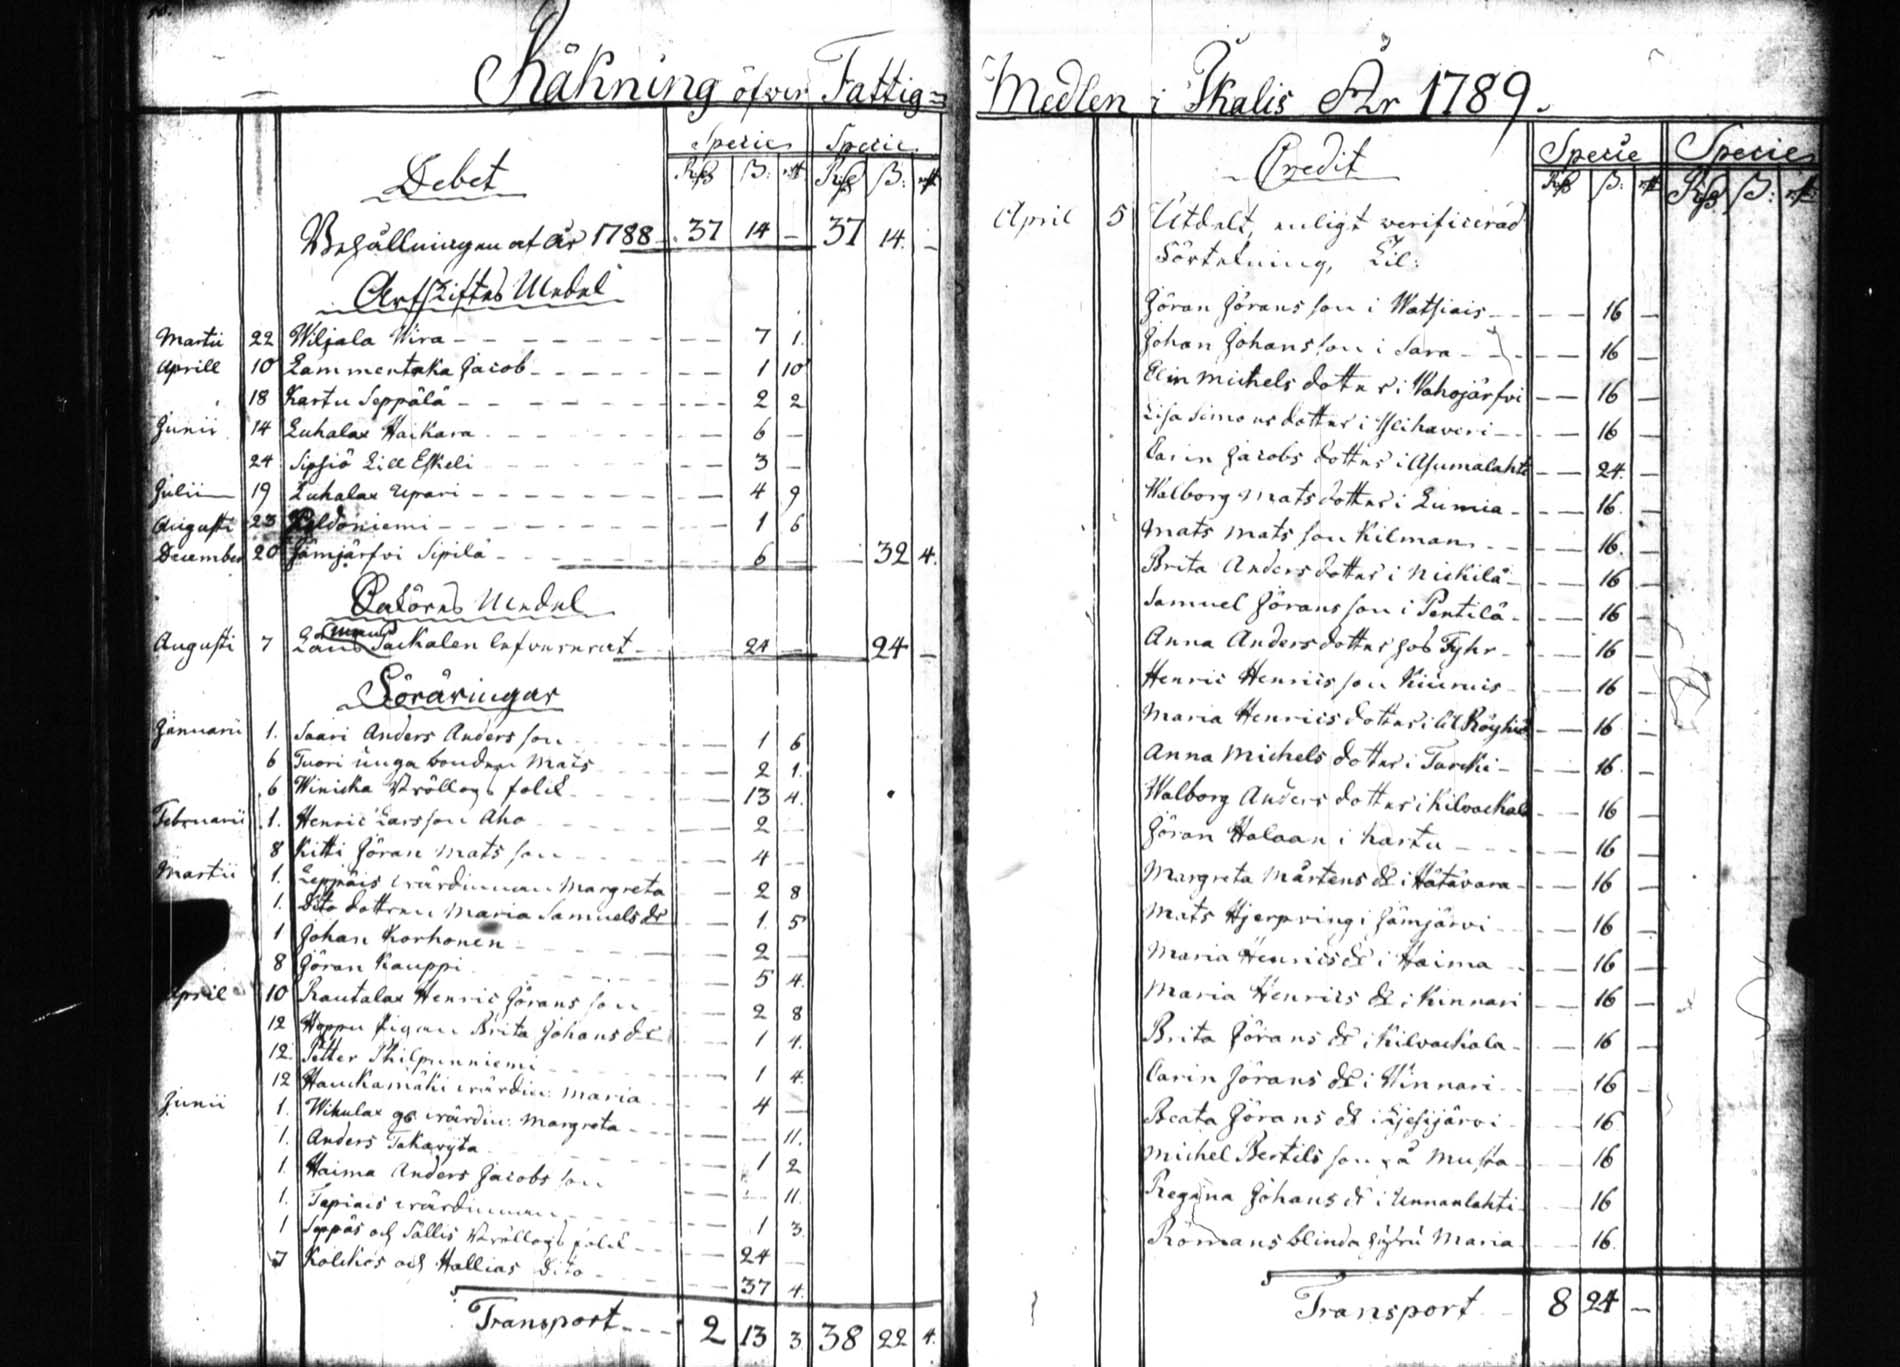 Räkning öfver Fattig=
Debet
Specie Specie
Rdr ß: rst Rdr ß: rst
Behållningen af år 1788 37 14 — 37 14. —
Arfskiftes Medel
Martii 22 Wiljala Wira 7 1.
Aprill 10 Lammentaka Jacob 1 10
18 Kartu Seppälä 2 2
Junii 14 Luhalax Haikara 6 —
24 Sipsiö Lill Eskeli 3 —
Julii 19 Luhalax Upari 4 9
Augusti 23 1 6
December 20 Jämjärfvi Sipilä 6 — — 32 4.
Medel
Augusti 7 lefvererat 24 — 24 —
Föräringar
Januarii 1. Saari Anders Andersson 1 6
6 Tuori unga bonden Mats 2 1.
6 Winicka Bröllops folck 13 4.
Februarii 1. Henric Larsson Aho 2 —
8 Kitti Göran Matsson 4 —
Martii 1. Leppäis wärdinnan Margreta 2 8
1. Dito dottren Maria Samuels dr 1. 5
1 Johan Korhonen 2 —
8 Göran Kauppi 5 4.
April 10 Rautalax Henric Göransson 2 8
12 Hoppu Pigan Brita Johans dr 1 4.
12. Petter Philpunniemi 1 4.
12 Hauckamäki wärdin: Maria 4 —
Junii 1. Wikulax wärdin: Margreta — 11.
1. Anders Takavyta 1 2
1. Haima Anders Jacobsson — 11.
1. Tapiais wärdinnan 1 3.
1 Seppäs och Sällis Bröllops folck 24 —
7 Kolckos och Hallias Dito 37 4.
Transport 2 13 3 38 22 4.
Medlen i Ikalis År 1789.
Credit
Specie Specie
Rdr ß: rst Rdr ß: rst
April 5 Utdelt, enligt verificerad
Förtekning, Til:
Göran Göransson i Watsiais 16 —
Johan Johansson i Sara 16 —
Elin Michels dotter i Wahojärfvi 16 —
Lisa Simons dotter i 16 —
Carin Jacobs dotter i Asumalahti 24. —
Walborg Mats dotter i Lumia 16. —
Mats Matsson Kilman 16. —
Brita Anders dotter i Nickilä 16 —
Samuel Göransson i Pentilä 16 —
Anna Anders dotter hos Fyhr 16 —
Henric Henricsson Kiuruis 16 —
Maria Henrics dotter i Lill Röyhiö 16 —
Anna Michels dotter i Turcki 16. —
Walborg Anders dotter i Kilvackala 16 —
Göran Halaan i Kartu 16 —
Margreta Mårtens dr i Hätävara 16 —
Mats Hjerpring i Jämjärvi 16 —
Maria Henrics dr i Haima 16 —
Maria Henrics dr i Kinnari 16 —
Brita Görans dr i Kilvackala 16 —
Carin Görans dr i Kinnari 16 —
Beata Görans dr i 16
Michel Bertilsson på Musta 16
Regina Johans dr i Unnanlahti 16
Römans blinda hustru Maria 16.
Transport 8 24 —